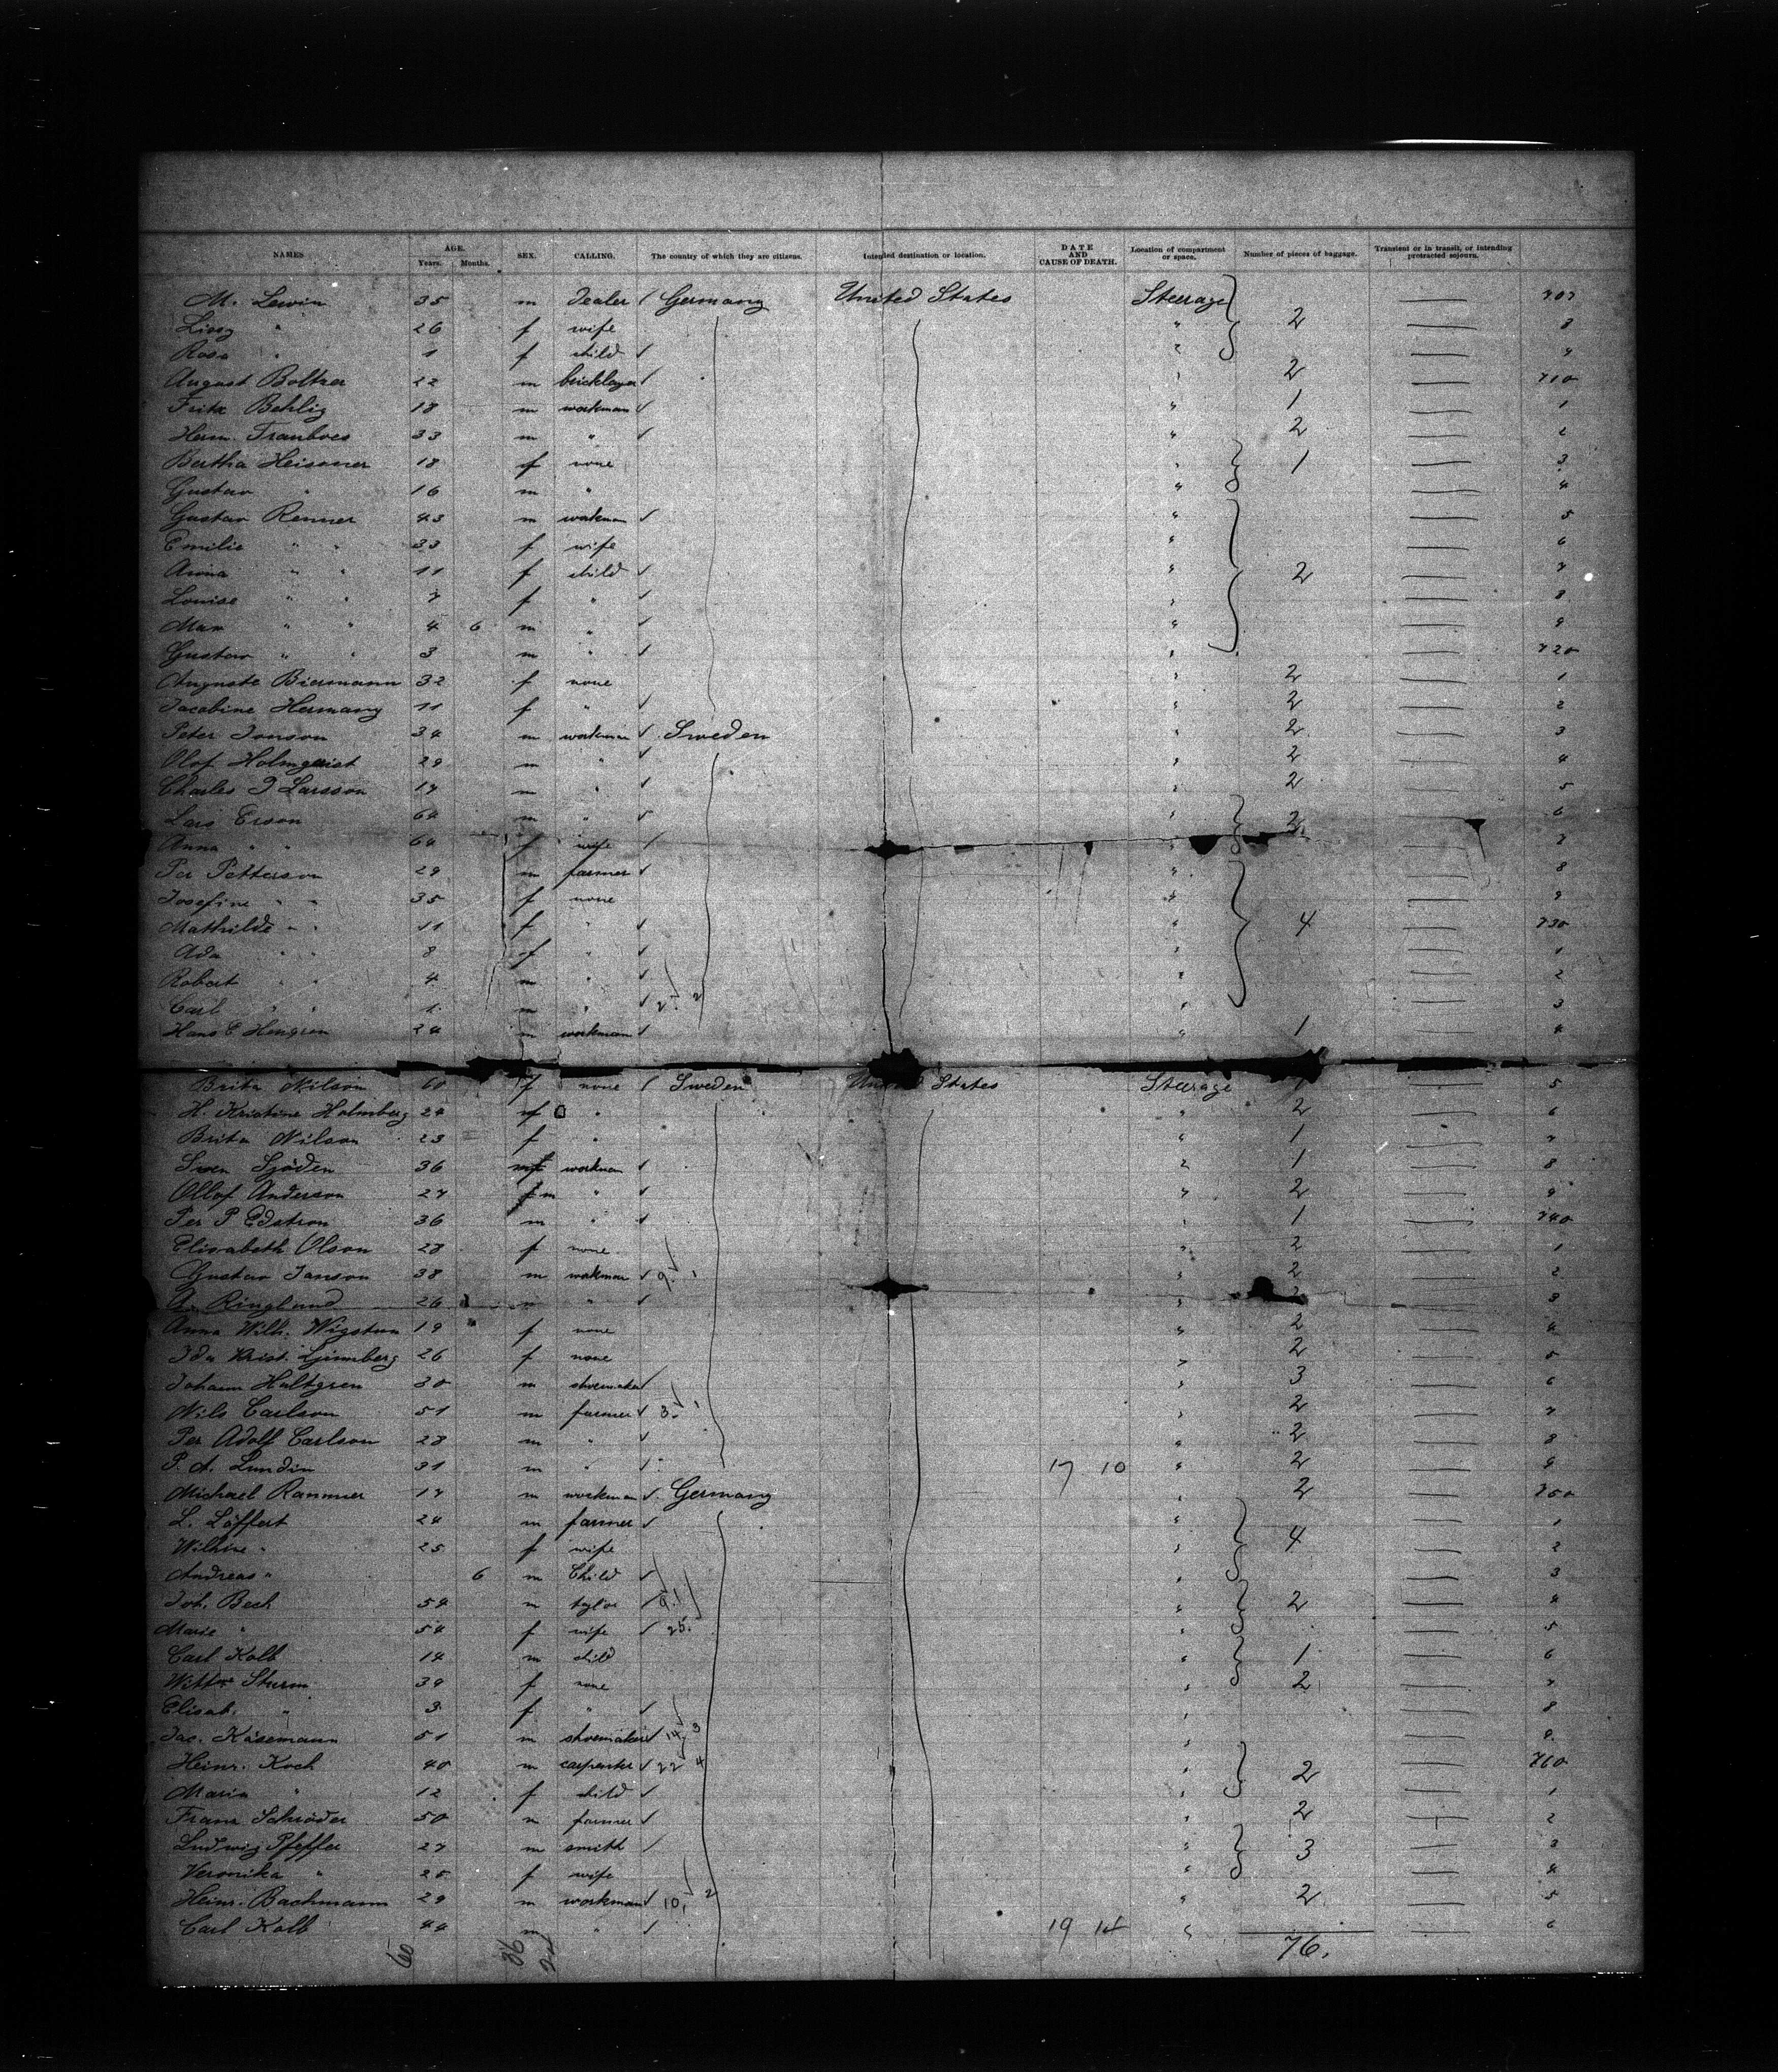 NAMES AGE. Years. Months. SEX. CALLING. The country of which they are citizens. Intended destination or location. DATE AND CAUSE OF DEATH. Location of compartment or space. Number of pieces of baggage. Transient or in transit, or intending protracted sojourn.
M. Lewin 35 m dealer Germany United States Steerage 707
" 26 f wife " 2 8
Rosa " 1 f child " 9
August Boltzer 22 m bricklayer " 2 710
Fritz Behlig 18 m workman " 1 1
Herm. 33 m " " 2 2
Bertha Heissner 18 f none " 1 3
Gustav " 16 m " " 4
Gustav Renner 43 m workman " 5
Emilie " " 33 f wife " 6
Anna " " 11 f child " 2 7
Louise " " 7 f " " 8
Max " " 4 6 m " " 9
Gustav " " 3 m " " 720
Auguste Biermann 32 f none " 2 1
Jacobine Hermany 11 f " " 2 2
Peter Jonson 34 m workman Sweden " 2 3
Olof Holmquist 29 m " " 2 4
Charles J Larsson 17 m " " 2 5
Lars Erson 64 m " " 2 6
Anna " " 64 f wife " 7
Per Petterson 29 m farmer " 8
Josefine " " 35 f none " 9
Mathilde " " 11 f " " 4 730
Ada " " 8 f " " 1
Robert " " 4 m " " 2
Carl " " 1 m " 2 2 " 3
Hans E Hengren 24 m workman " 1 4
Brita Nilson 60 f none Sweden United States Steerage 5
H. Kristine Holmberg 24 f " " 2 6
Brita Nilson 23 f " " 1 7
Sven Sjöden 36 m workman " 1 8
Ollof Anderson 27 m " " 2 9
Per P Edstrom 36 m " " 1 740
Elisabeth Olson 28 f none " 2 1
Gustav Janson 38 m workman 9 " 2 2
A. Ringlund 26 m " " 2 3
Anna Wilh. Wigstrom 19 f none " 2 4
Ida Krist. Ljunberg 26 f none " 2 5
Johann Hultgren 30 m shoemaker " 3 6
Nils Carlson 51 m farmer 3 " 2 7
Per Adolf Carlson 28 m " " 2 8
P. A. Lundin 31 m " 17 10 " 2 9
Michael Rammer 17 m workman Germany " 2 750
L. Löffert 24 m farmer " 1
" 25 f wife " 4 2
Andreas " 6 m Child " 3
Joh. Bech 54 m tylor 9.1 " 2 4
Marie " 54 f wife 25. " 5
Carl Kolb 14 m child " 1 6
Sturm 39 f none " 2 7
Elisab. " 3 f " " 8
Jac. Käsemann 51 m shoemaker 14 3 " 9
Heinr. Koch 40 m carpenter 22 4 " 2 760
Maria " 12 f child " 1
Franz Schröder 50 m farmer " 2 2
Ludwig Pfeffer 27 m smith " 3 3
Veronika " 25 f wife " 4
Heinr. Bachmann 29 m workman 10, 2 " 2 5
Carl Kolb 44 m " 19 14 " 6
60 36 24 76.